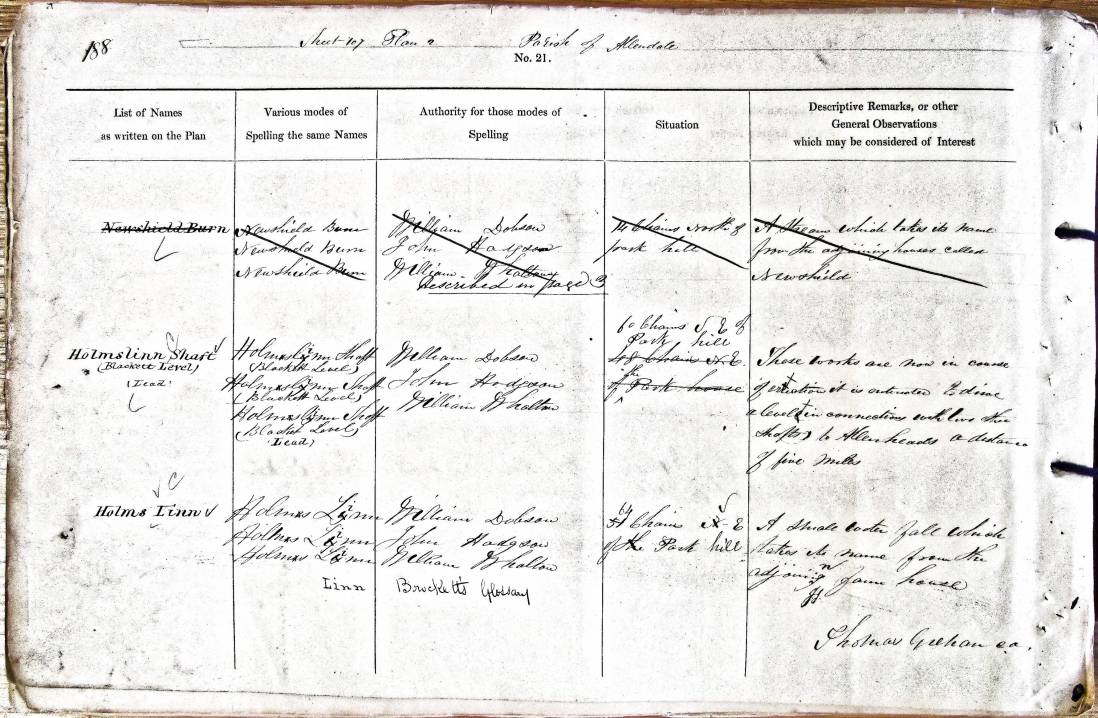 188
Sheet 107 Plan 2 Parish of Allendale
No. 21.
List of Names
as written on the Plan
Various modes of
Spelling the same Names
Authority for those modes of
Spelling
Situation
Descriptive Remarks, or other
General Observations
which may be considered of Interest
Newshield Burn
Newshield Burn
Newshield Burn
Newshield Burn
William Dobson
John Hodgson
William Whaltton
Described in page 3
14 Chains North of
park hill
A Stream which takes its name
from the adjoining houses called
Newshield
Holmslinn Shaft
(Blackett Level)
(Lead)
Holms Linn Shaft
(Blackett Level)
Holms Linn Shaft
(Blackett Level)
Holms Linn Shaft
(Blackett Level)
(Lead)
William Dobson
John Hodgson
William Whalton
60 Chains S.E of
Park hill
48 Chain N.E.
of the Park house
These works are now in course
of it is to drive
a level in connection with two other
Shafts to Allenheads a distance
of five miles
Holms Linn
Holms Linn
Holms Linn
Holms Linn
Linn
William Dobson
John Hodgson
William Whalton
Brockett's Glossary
64 Chain S. E
of the Park hill
A small water fall which
takes its name from the
adjoining farm house
Thomas ca.